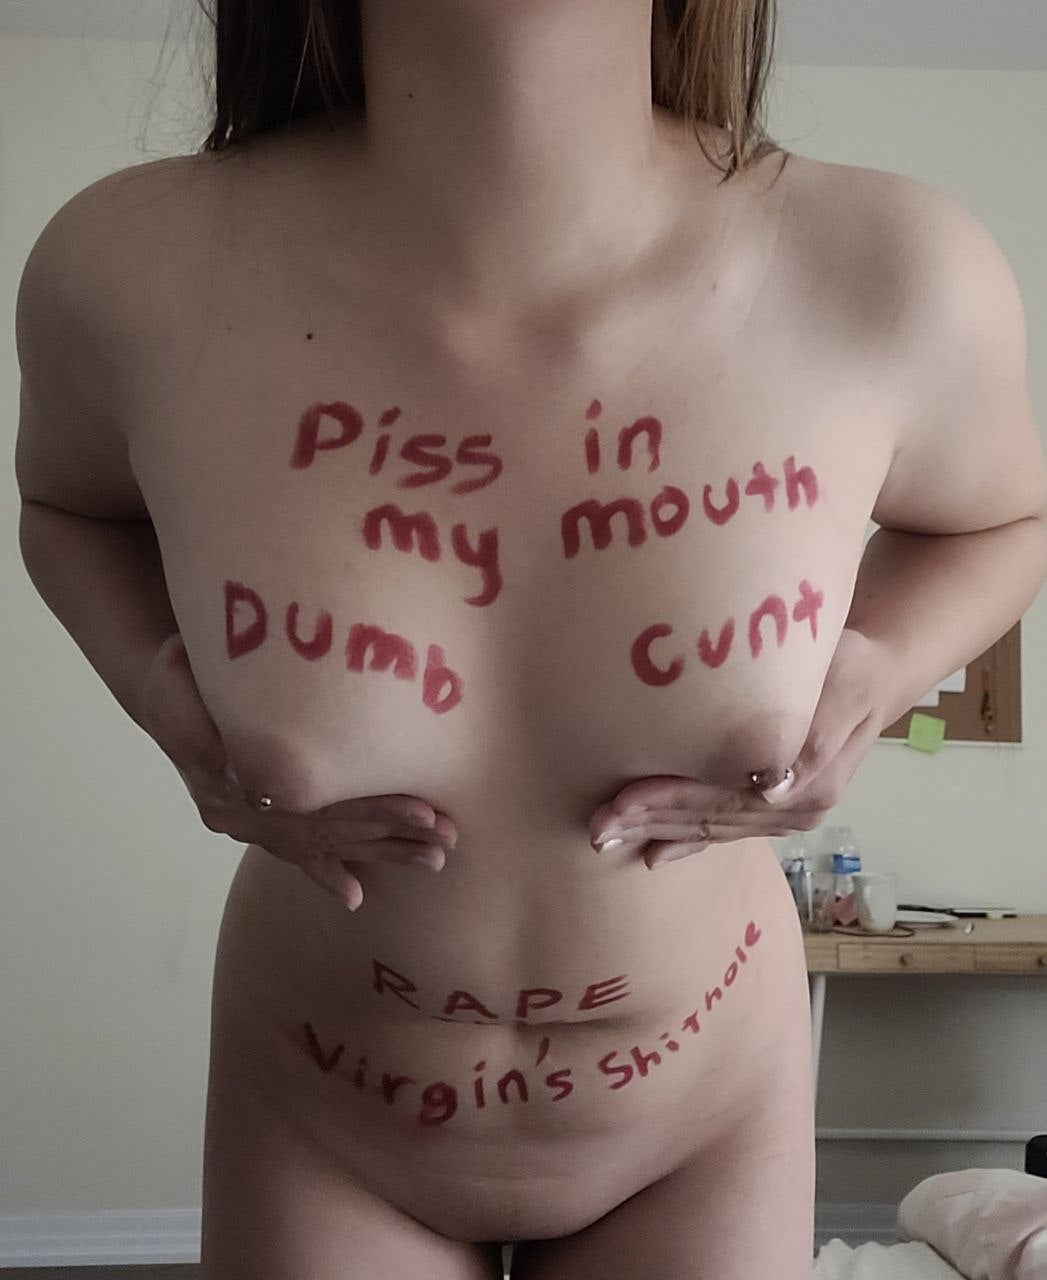 Piss in
my mouth
Dumb Cunt
RAPE
Virgin's Shithole